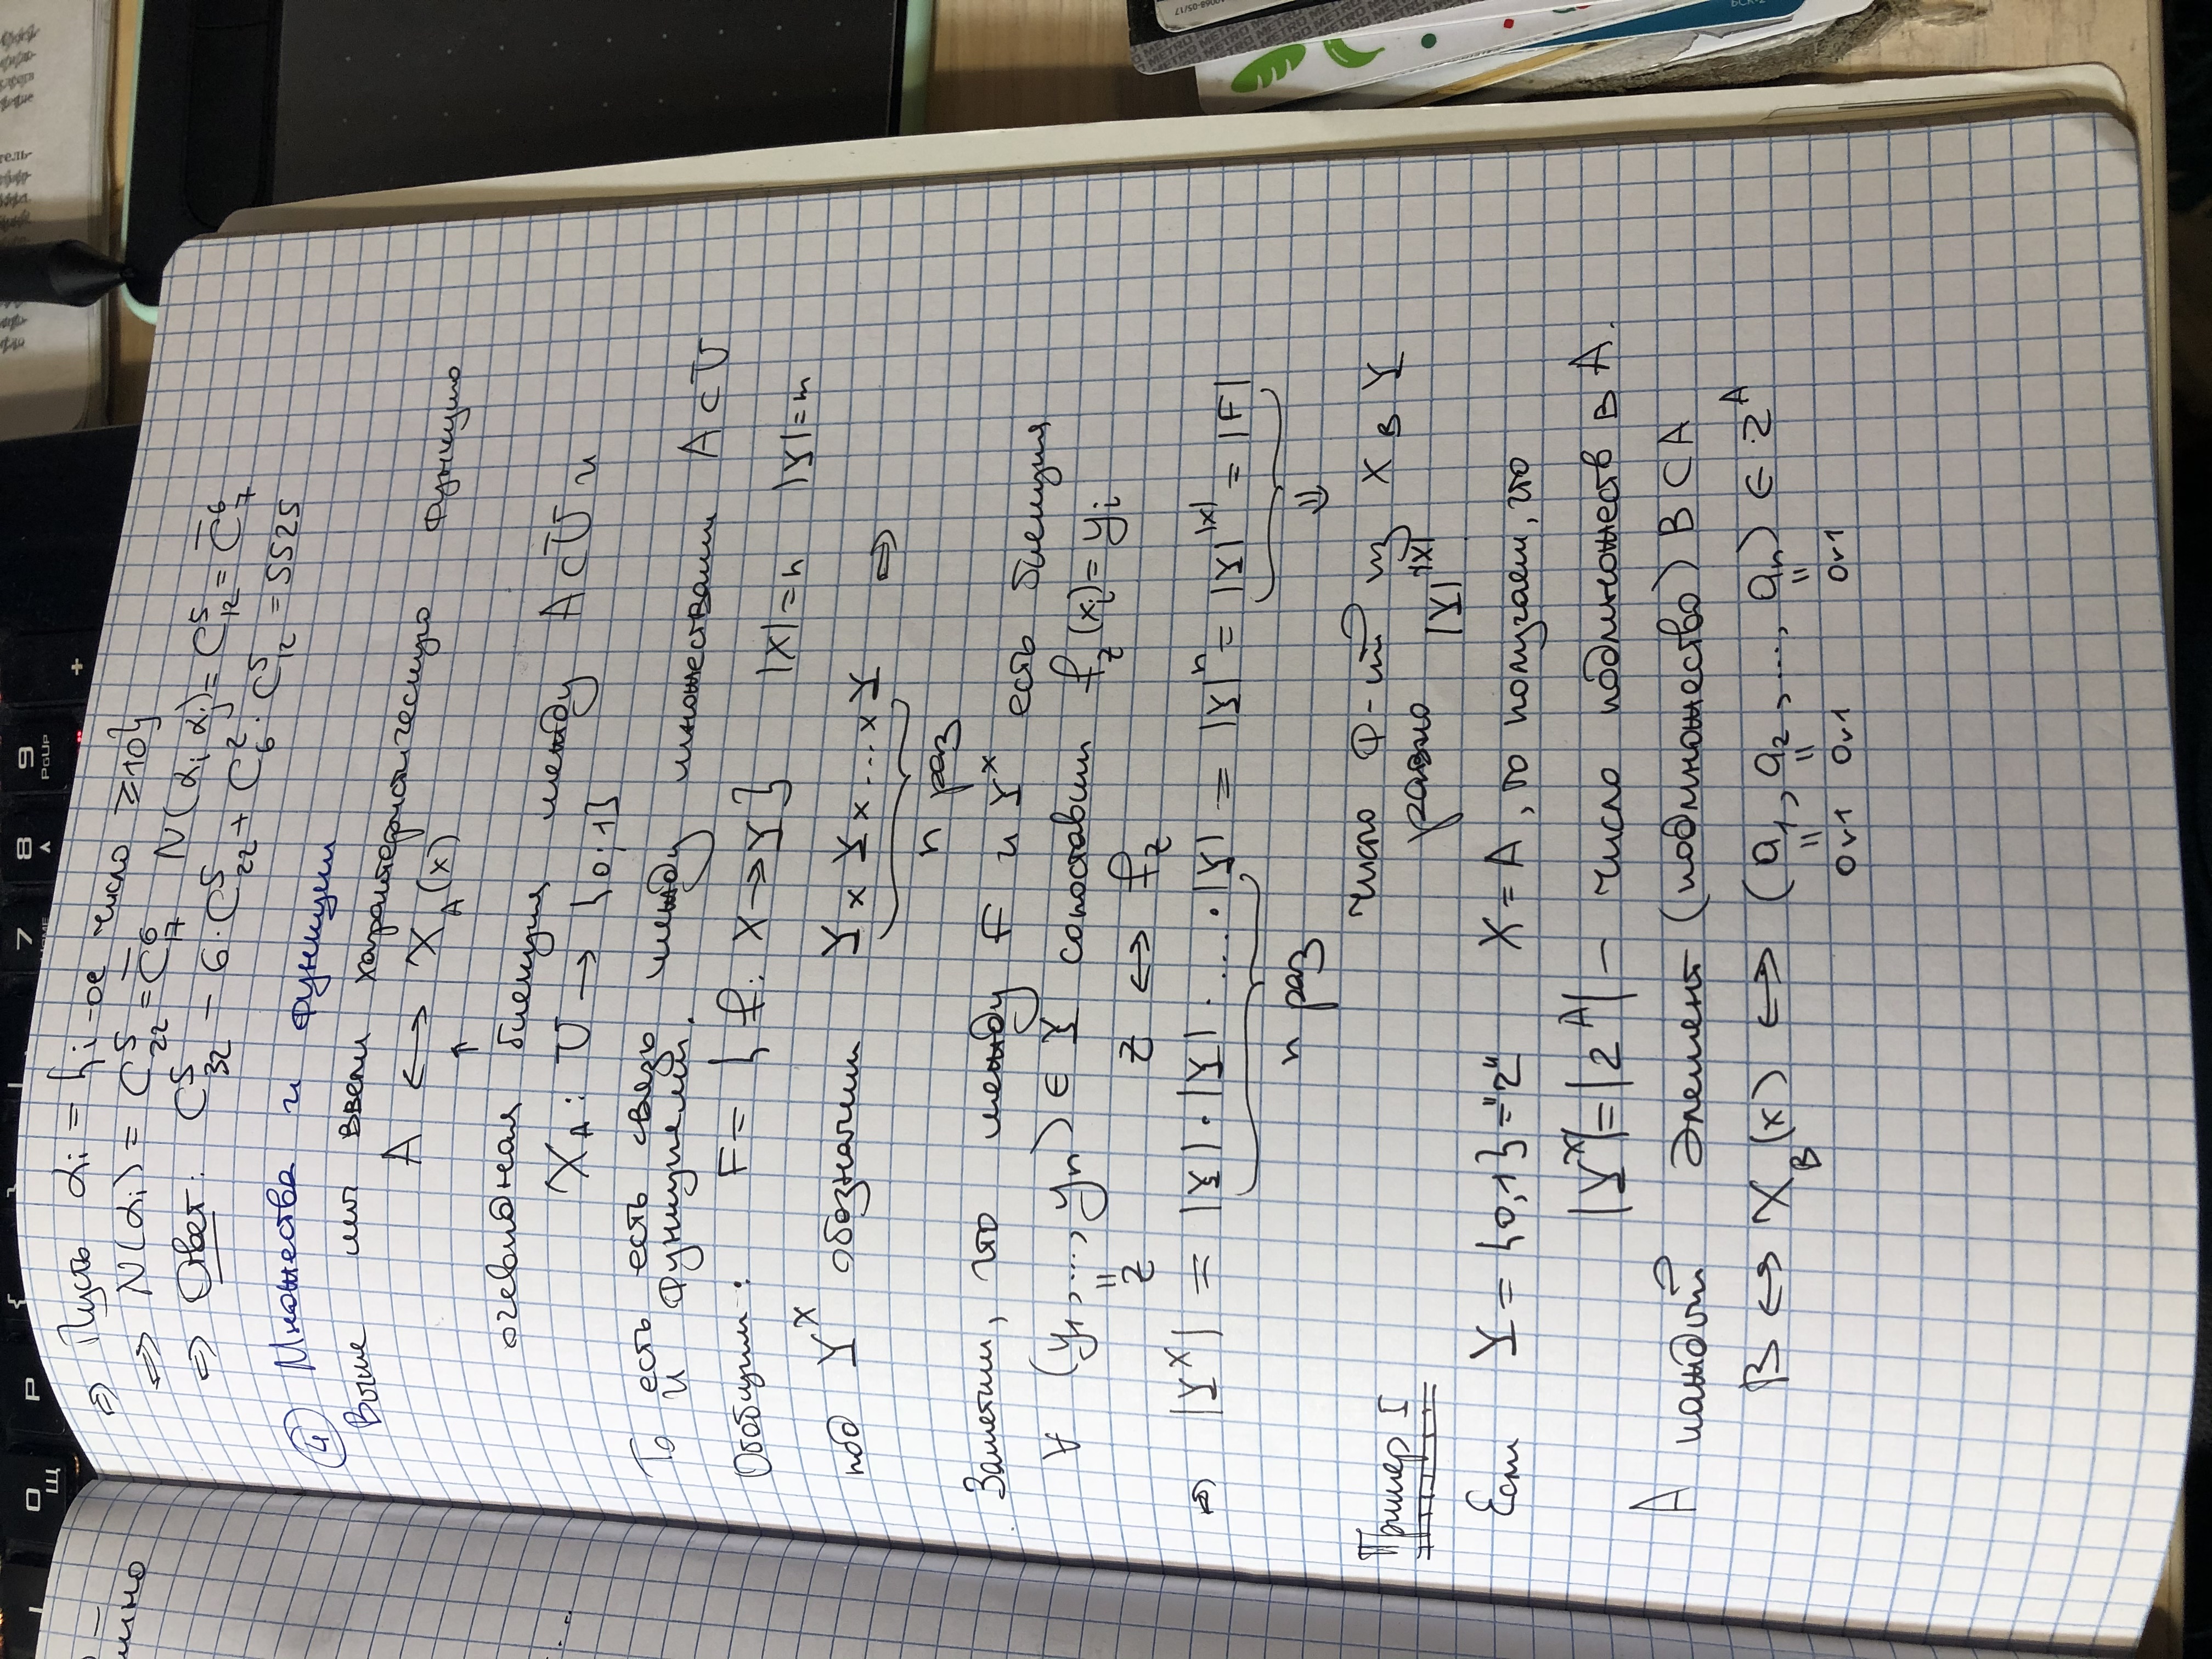 О
Щ
Р
7
HOME
8
9
PGUP
+
⇒ Пусть αi = {i-ое число ≥10}
⇒ N(αi) = C⁵₂₂ = C̄⁶₇ N(αi αj) = C⁵₁₂ = C̄⁶₇
⇒ Ответ: C⁵₃₂ - 6·C⁵₂₂ + C²₆·C⁵₁₂ = 5525
④ Множества и функции
Выше мы ввели характеристическую функцию
A ↔ X_A(x)
↑
очевидная биекция между A⊂U и
X_A: U → {0;1}
То есть есть связь между множествами A⊂U
и функциями.
Обобщим: F = {f: X→Y} |X|=n |Y|=m
под Y^X обозначим Y×Y×...×Y ⇒
n раз
Заметим, что между F и Y^X есть биекция
∀ (y₁,..., yn) ∈ Y сопоставим f_z(xi) = yi
||
z z ↔ f_z
⇒ |Y^X| = |Y|·|Y|·...·|Y| = |Y|^n = |Y|^|X| = |F|
n раз ⇓
число ф-ий из X в Y
равно |Y|^|X|
Пример I
Если Y = {0,1} = "2" X = A, то получаем, что
|Y^X| = |2^A| – число подмножеств в A.
А каждый элемент (подмножество) B⊂A
B ↔ X_B(x) ↔ (a₁, a₂, ..., an) ∈ 2^A
|| || ||
0∨1 0∨1 0∨1
METRO METRO METRO